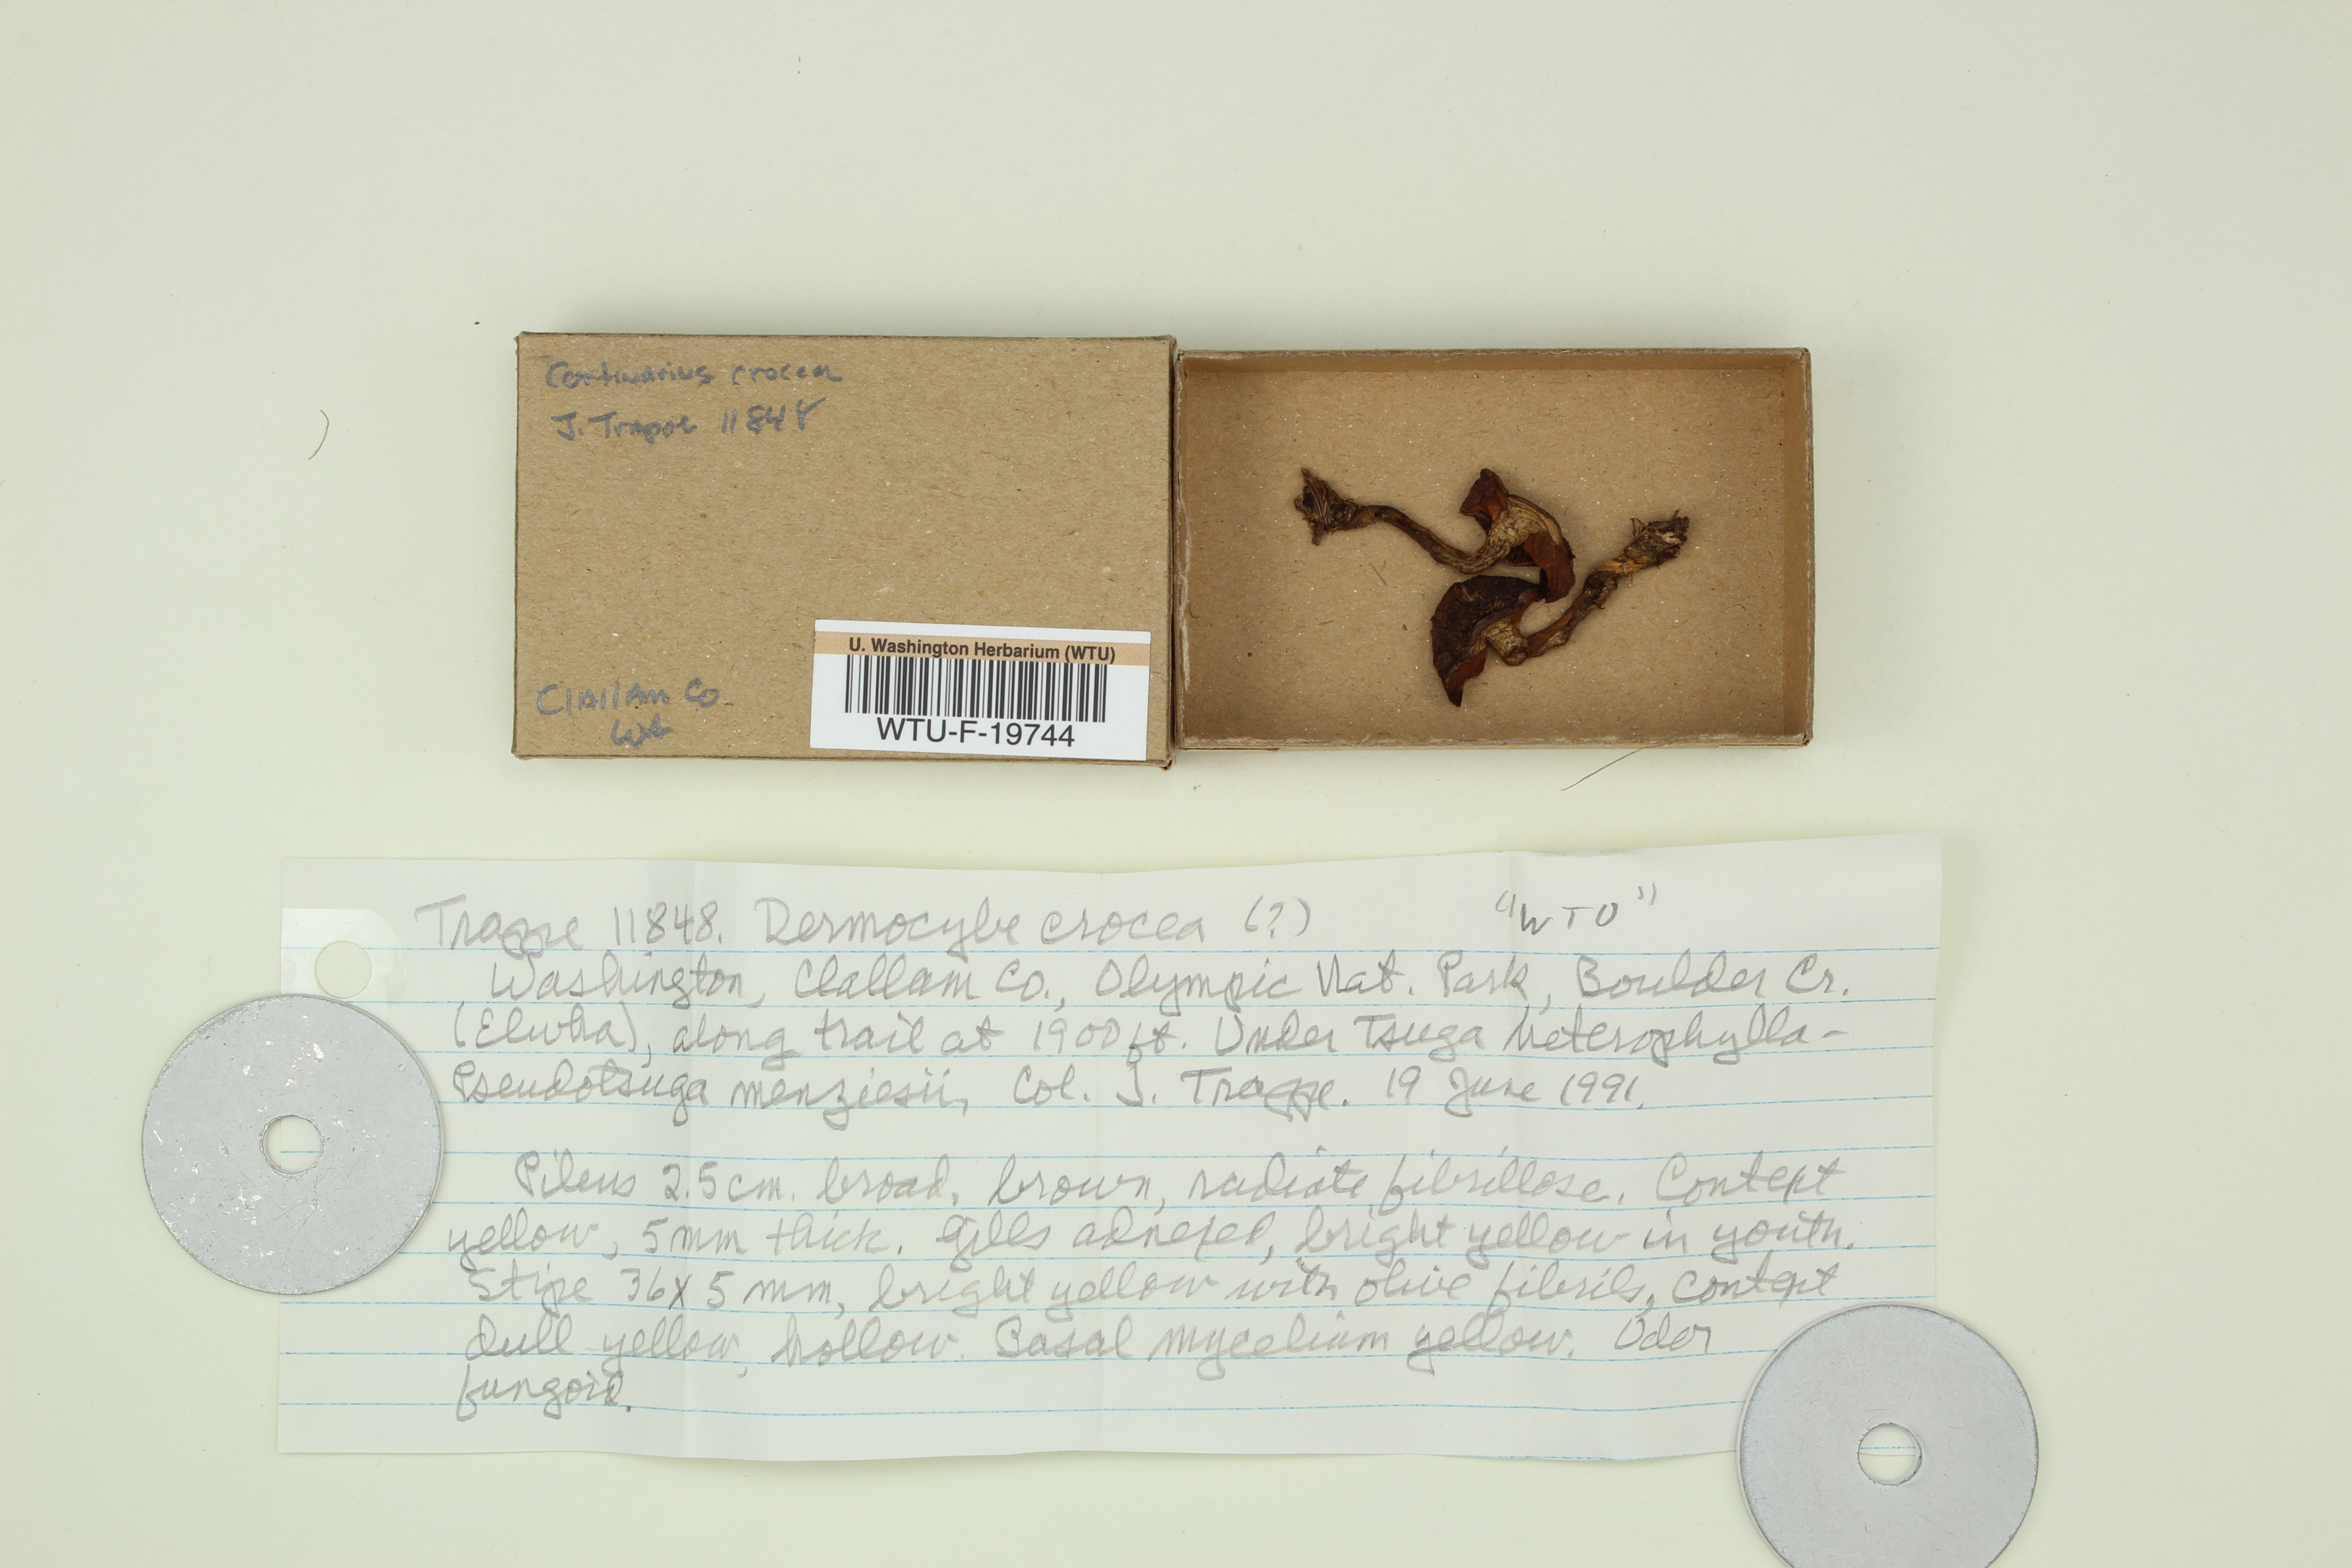 Cortinarius crocea
J. Trappe 11848
Clallam Co
Wa
U. Washington Herbarium (WTU)
WTU-F-19744
Trappe 11848. Dermocybe crocea (?) "WTU"
Washington, Clallam Co., Olympic Nat. Park, Boulder Cr.
(Elwha), along trail at 1900 ft. Under Tsuga heterophylla-
Pseudotsuga menziesii, Col. J. Trappe. 19 June 1991.
Pileus 2.5 cm. broad, brown, radiate fibrillose. Context
yellow, 5 mm thick. Gills adnexed, bright yellow in youth.
Stipe 36 x 5 mm, bright yellow with olive fibrils, context
dull yellow, hollow. Basal mycelium yellow. Odor
fungoid.